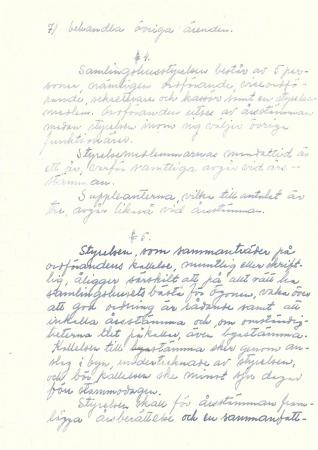 7) behandla övriga ärenden.
§ 4.
Samlingshusstyrelsen består av 5 per-
soner, nämligen ordförande, viceordfö-
rande, sekreterare och kassör samt en styrelse-
medlem. Ordföranden utses av årsstämman
medan styrelsen inom sig väljer övriga
funktionärer.
Styrelsemedlemmarnas mandattid är
ett år, varför samtliga avgår vid års-
stämman.
Suppleanterna, vilka till antalet är
tre, avgår likaså vid årsstämman.
§ 5.
Styrelsen, som sammanträder på
ordförandens kallelse, muntlig eller skrift-
lig, åligger särskilt att på allt sätt ha
samlingshusets bästa för ögonen, vaka över
att god ordning är rådande samt att
inkalla årsstämma och, om omständig-
heterna det påkallar, även bystämma.
Kallelsen till stämma sker genom an-
slag i byn, undertecknade av styrelsen,
och bör kallelsen ske minst sju dagar
före stämmodagen.
Styrelsen skall för årsstämman fram-
lägga årsberättelse och en sammanfatt-